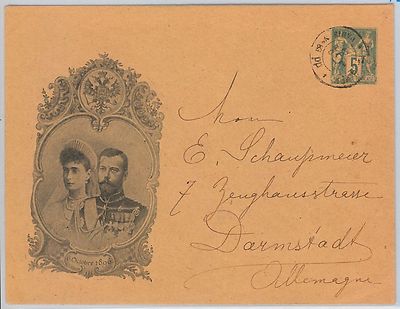 5
Octobre 1896
Monr
E. Schaupmeier
7 Zeughausstrasse
Darmstadt
Allemagne